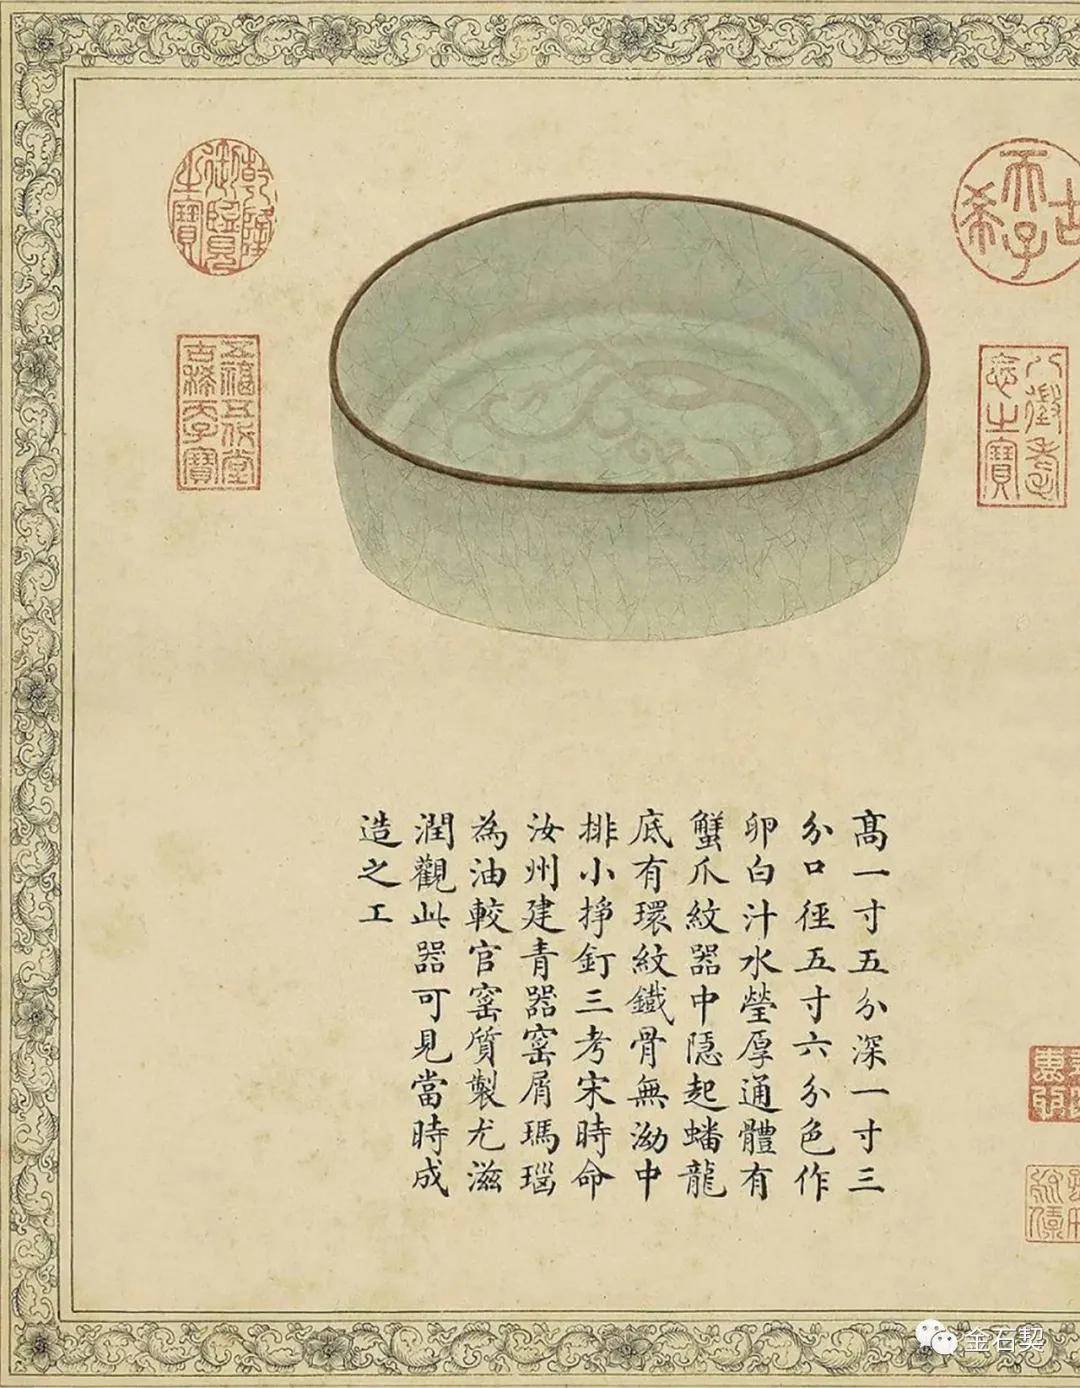 高一寸五分深一寸三
分口徑五寸六分色作
卵白汁水瑩厚通體有
蟹爪紋器中隱起蟠龍
底有環紋鐵骨無泑中
排小掙釘三考宋時命
汝州建青器窑屑瑪瑙
為油較官窑質製尤滋
潤觀此器可見當時成
造之工
古希天子
八徵耄念之寶
乾隆御覽之寶
五福五代堂古稀天子寶
金石契